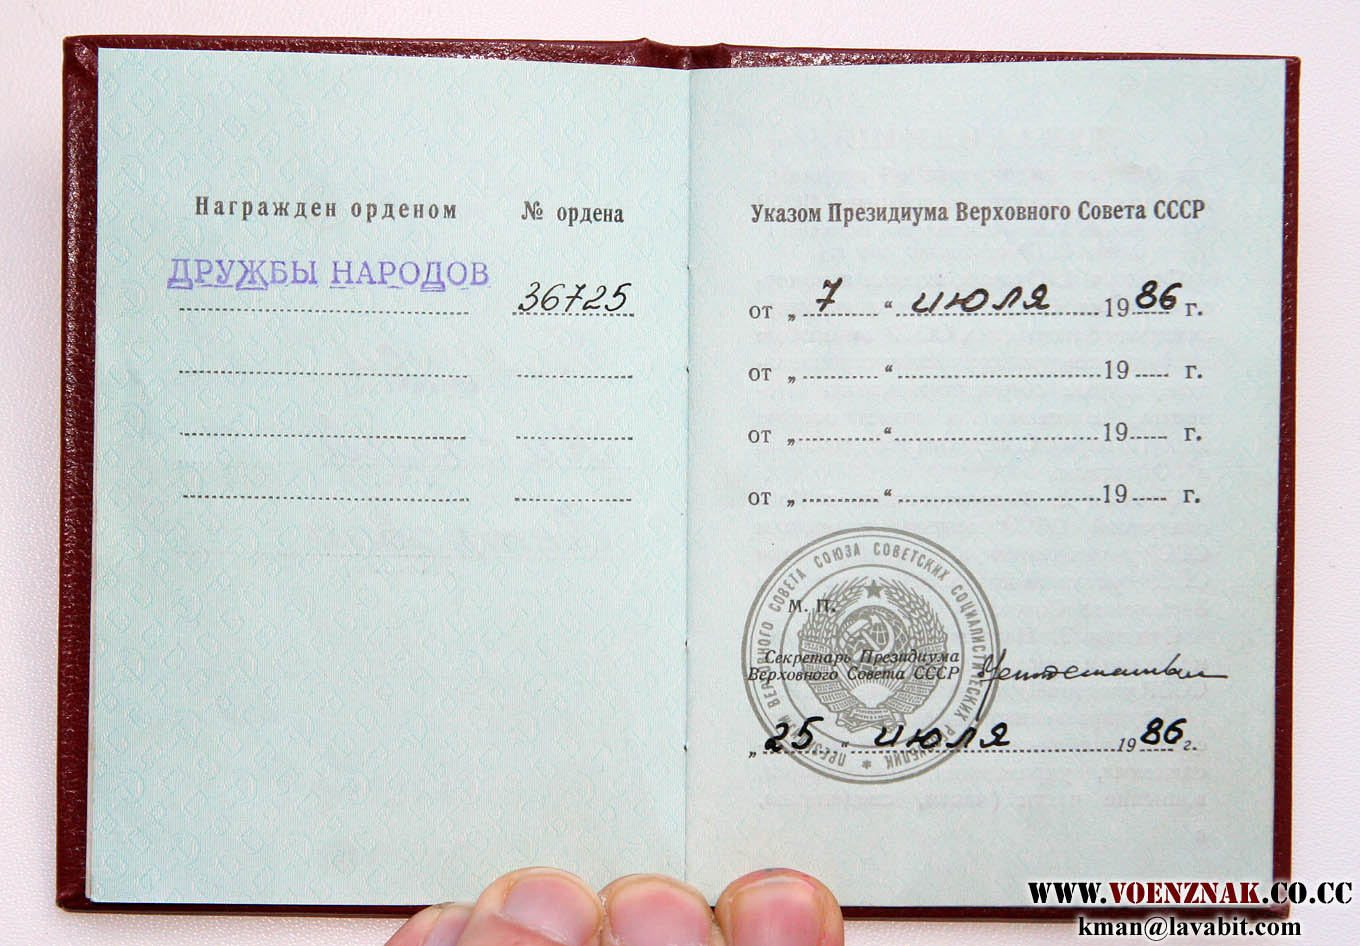 Награжден орденом № ордена
ДРУЖБЫ НАРОДОВ 36725
Указом Президиума Верховного Совета СССР
от „ 7 “ июля 1986 г.
от „ “ 19 г.
от „ “ 19 г.
от „ “ 19 г.
ПРЕЗИДИУМ ВЕРХОВНОГО СОВЕТА СОЮЗА СОВЕТСКИХ СОЦИАЛИСТИЧЕСКИХ РЕСПУБЛИК *
М. П.
Секретарь Президиума
Верховного Совета СССР
„ 25 “ июля 1986 г.
WWW.VOENZNAK.CO.CC
kman@lavabit.com